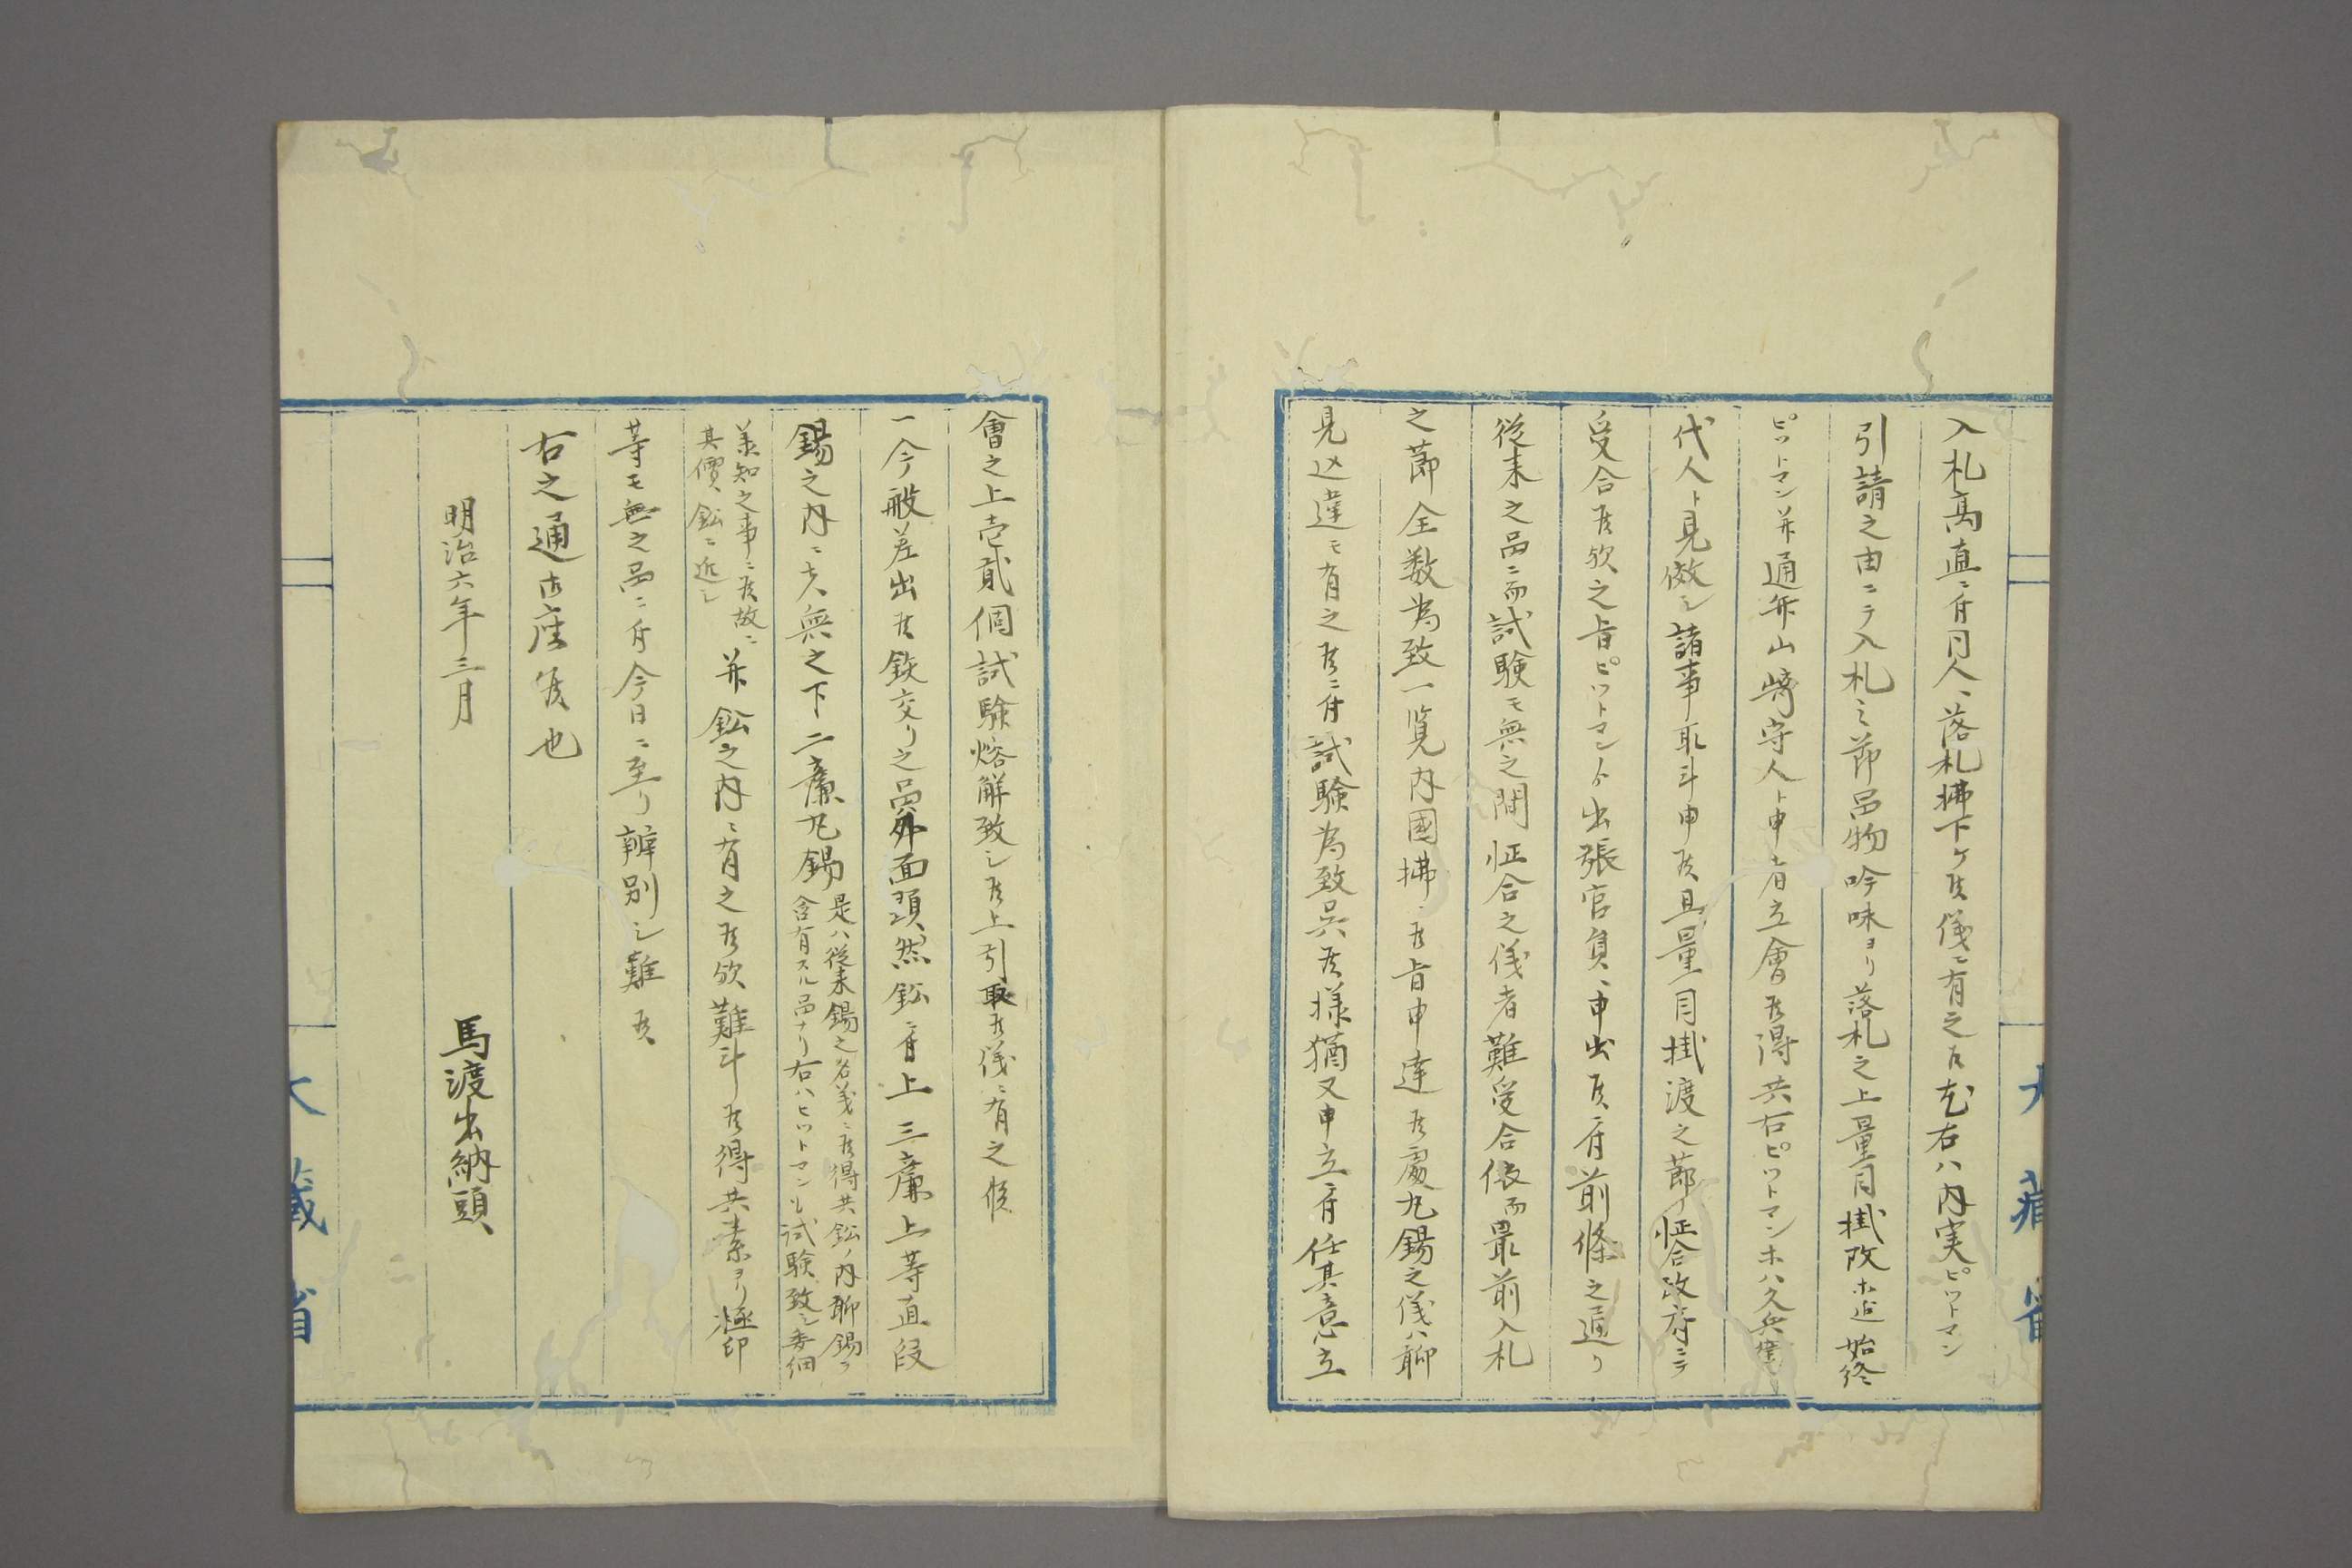 入札高直ニ付同人ヘ落札拂下ケ候儀ニ有之候尤右ハ内実ピツトマン
引請之由ニテ入札之節品物吟味ヨリ落札之上量目掛改ホ迄始終
ピツトマン并通弁山﨑守人ト申者立會候得共右ピツトマンホハ久兵衛
代人ト見做シ諸事取斗申候且量目掛渡之節怔合改方ニテ
受合候欤之旨ピツトマンゟ出張官員ヘ申出候ニ付前條之通リ
従来之品ニ而試験モ無之間怔合之儀者難受合依而最前入札
之節全数為致一覧内國拂ニ候旨申達候處丸錫之儀ハ聊
見込違モ有之候ニ付試験為致呉候様猶又申立ニ付任其意立
會之上壱貳個試験熔解致シ候上引取候儀ニ有之候
一今般差出候鉄交リ之品外面顕然鉛ニ付上三廉上等直段
錫之内ニ而ハ無之下二廉丸錫
是ハ従来錫之名義ニ候得共鉛ノ内聊錫ヲ
含有スル品ナリ右ハピツトマンモ試験致シ委細
兼知之事ニ候故ニ
其價鉛ニ近シ
并鉛之内ニ有之候欤難斗候得共素ヨリ極印
等モ無之品ニ付今日ニ至リ辨別シ難候
右之通御座候也
明治六年三月
馬渡出納頭
大藏省